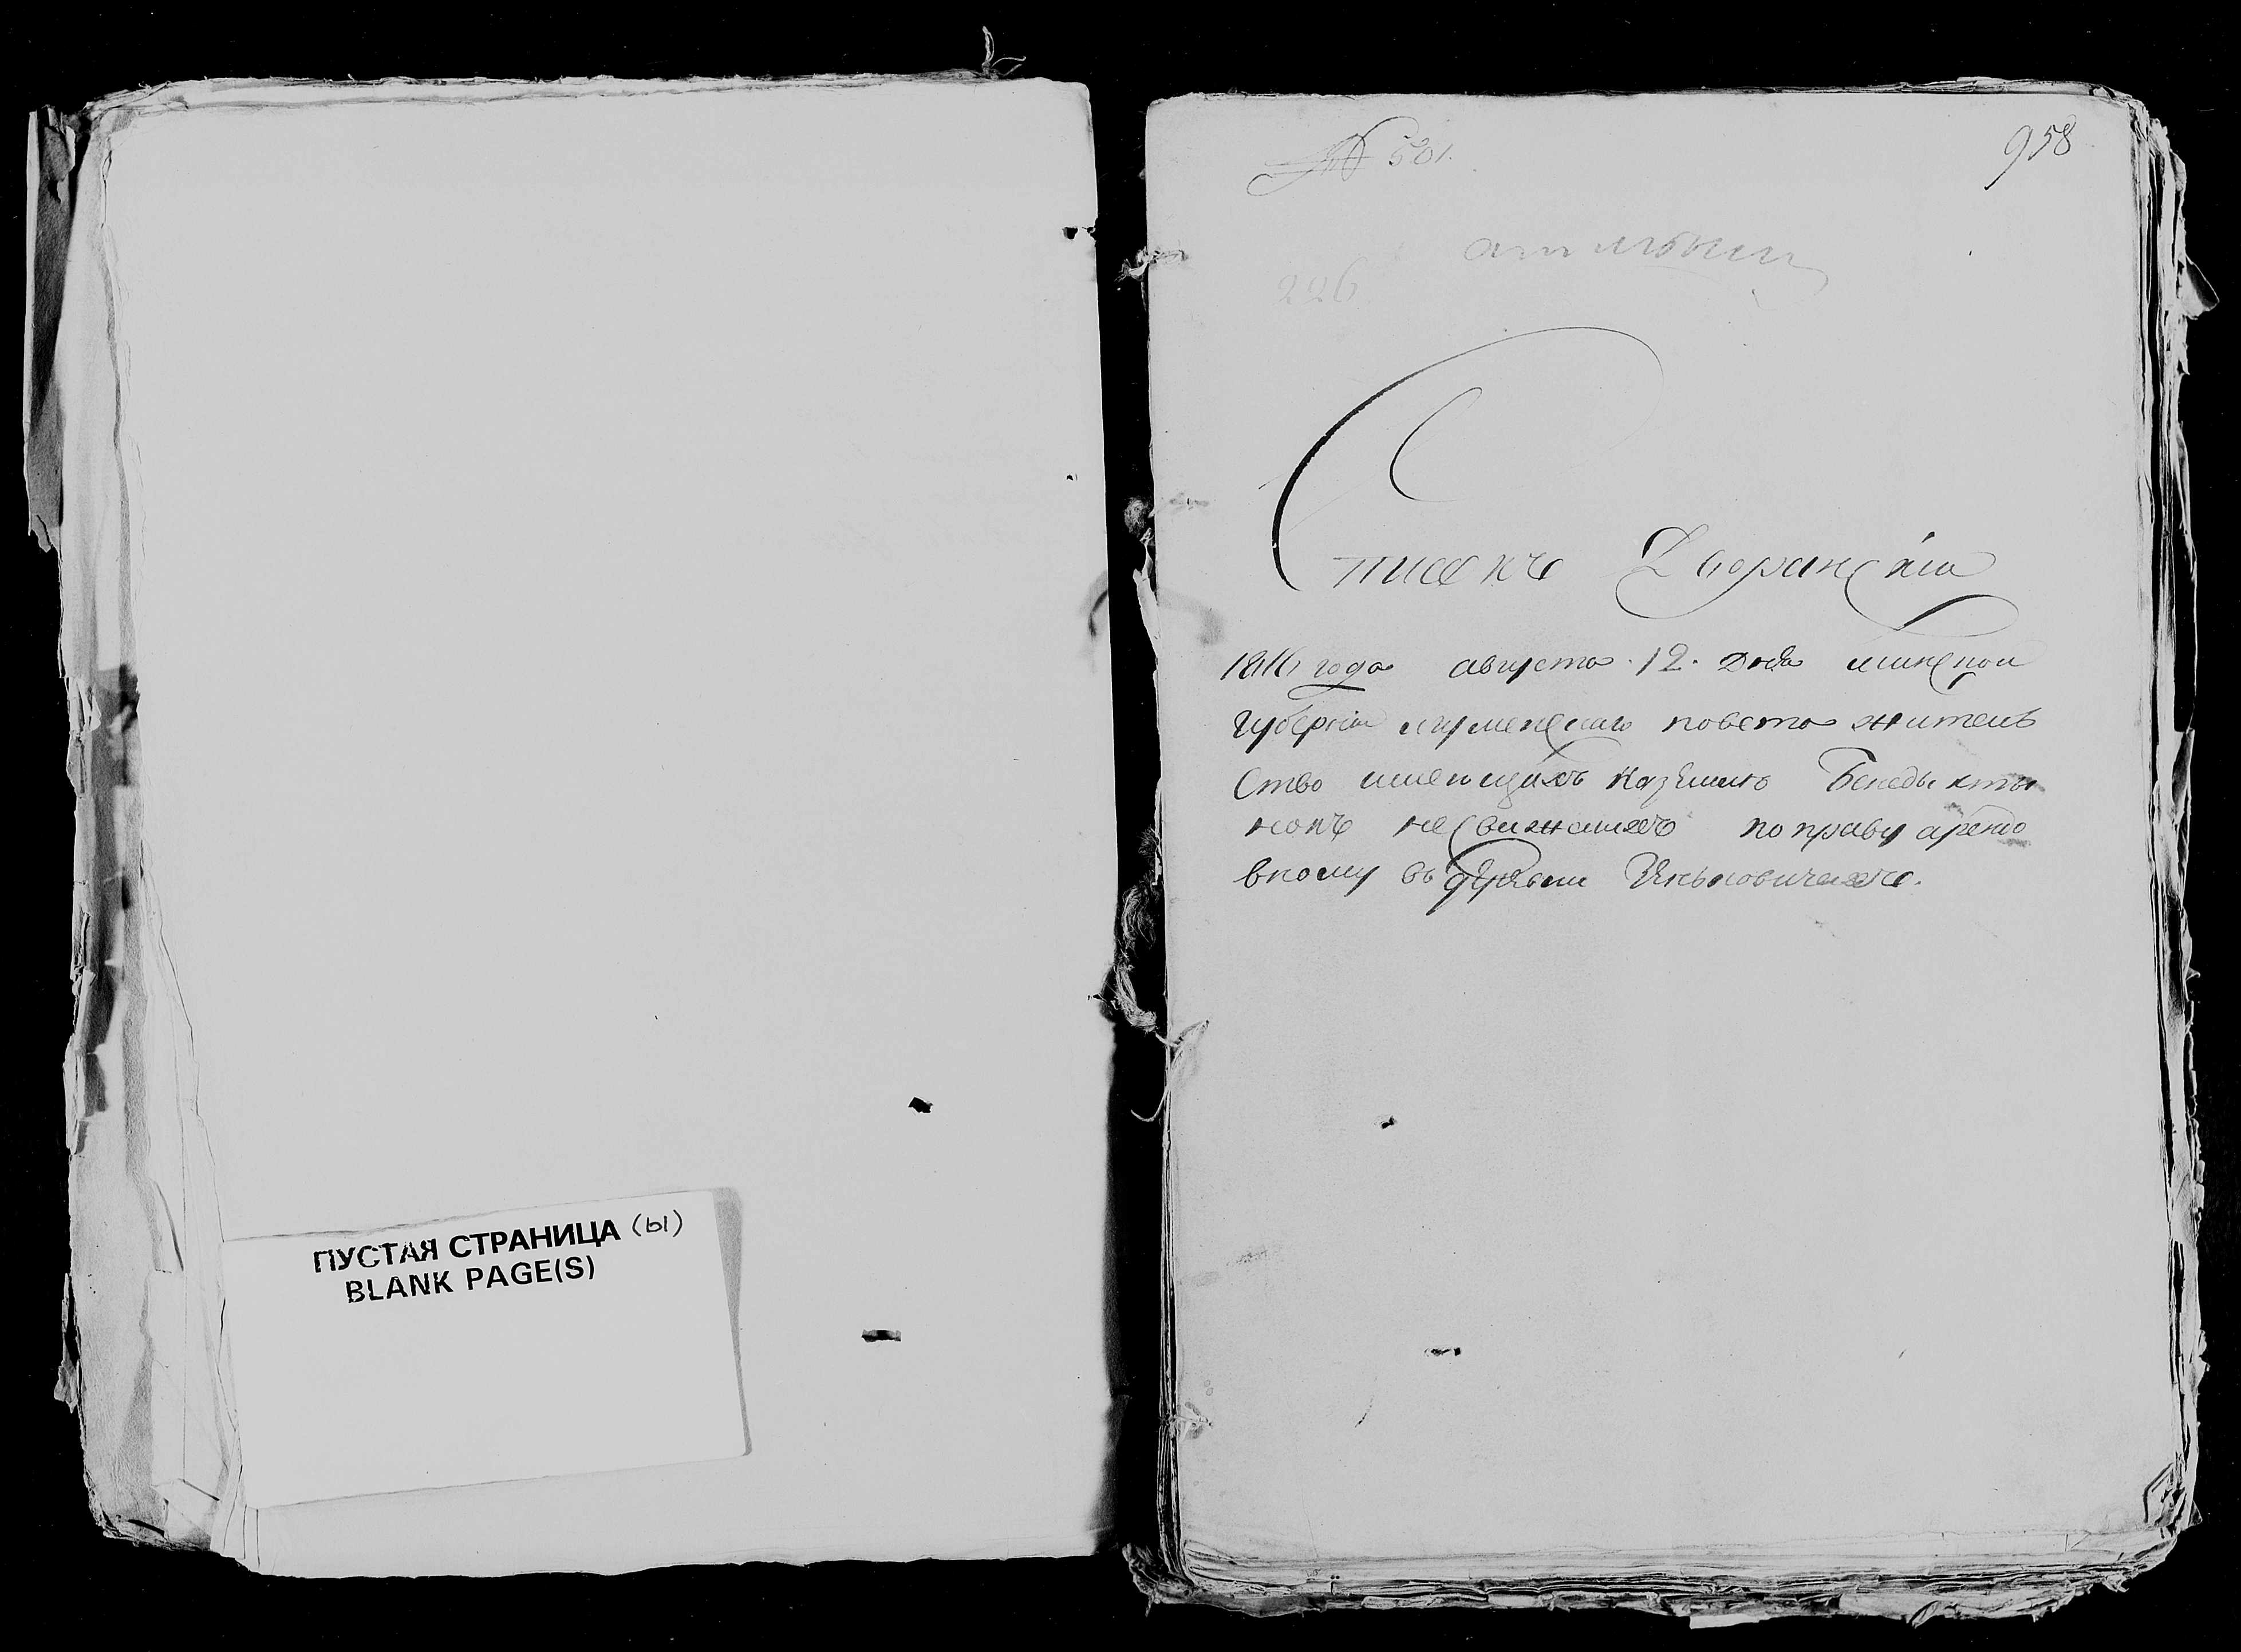 ПУСТАЯ СТРАНИЦА (ы)
BLANK PAGE(S)
№ 501.
958
226
Списокъ Дворанскія
1816 года августа 12. Дня минской
губерніи игуменского повета житель
ство имеющихъ Казимиъ Бенедыкты
новъ несвижскихъ по праву арендо
вному въ